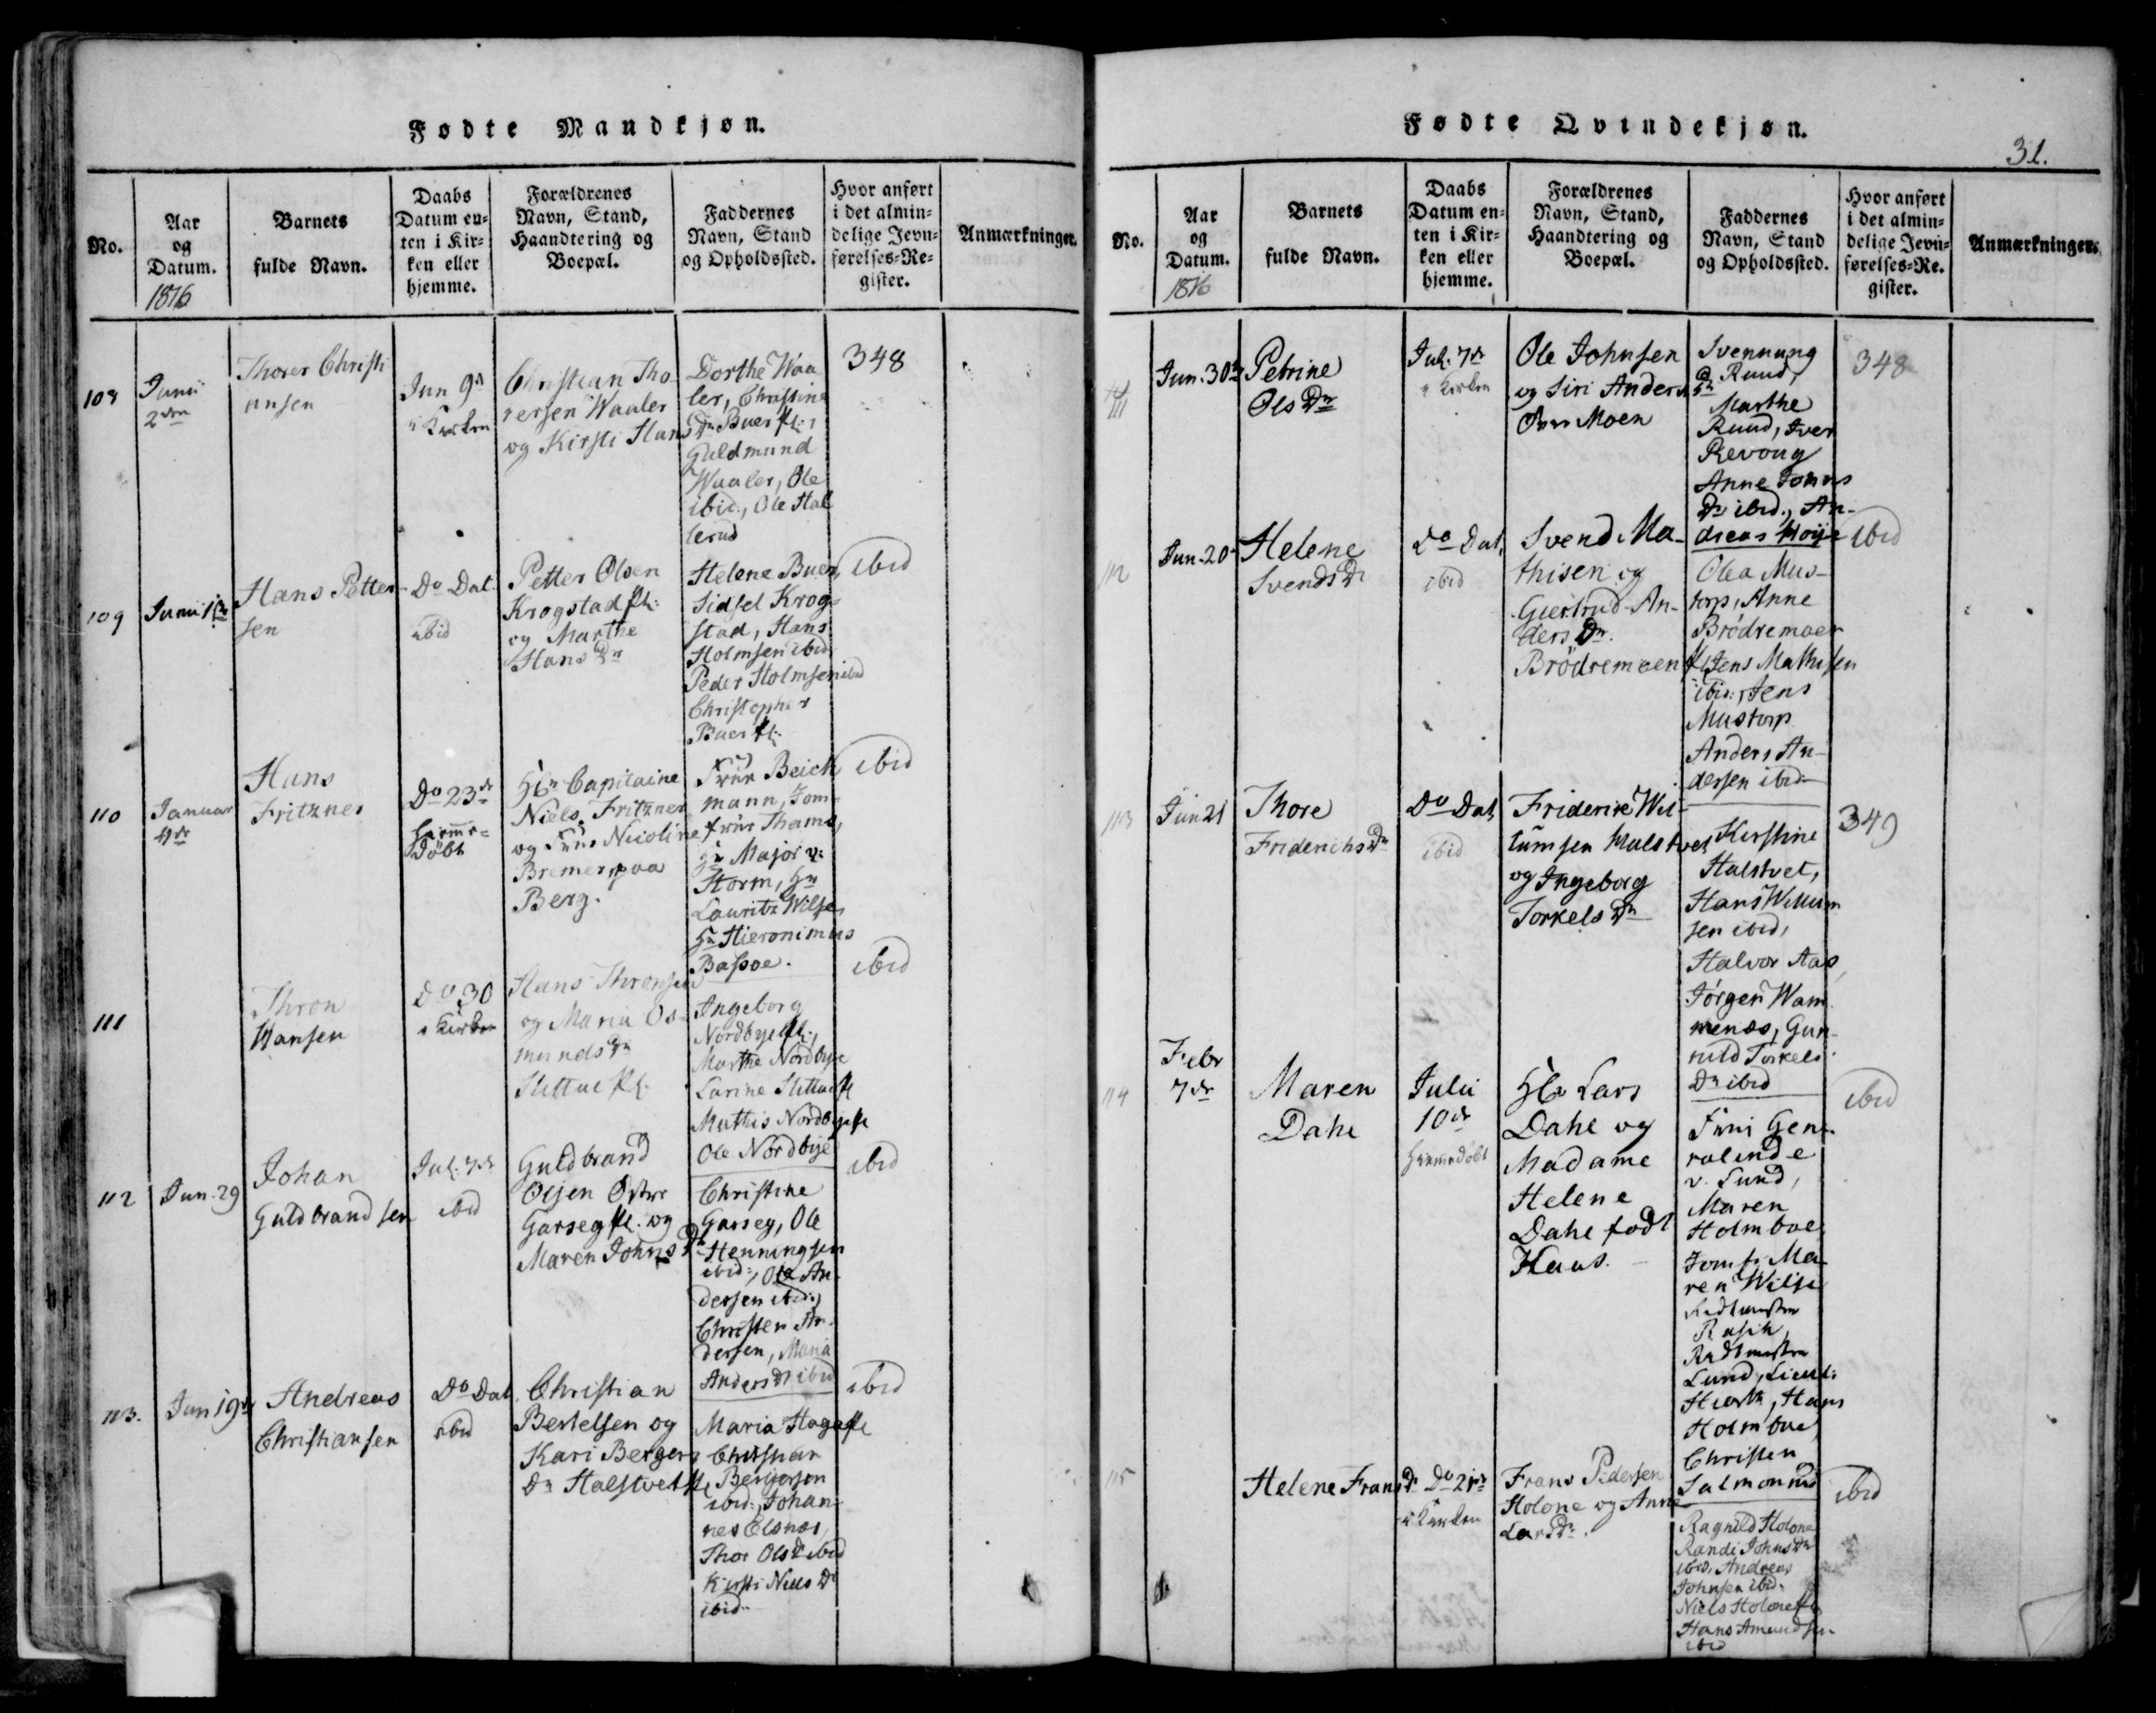 Fødte Mandkjøn.
No.
Aar
og
Datum.
1816
Barnets
fulde Navn.
Daabs
Datum en-
ten i Kir-
ken eller
hjemme.
Forældrenes
Navn, Stand,
Haandtering og
Boepæl.
Faddernes
Navn, Stand
og Opholdssted.
Hvor anført
i det almin-
delige Jevn-
førelses-Re-
gister.
Anmærkninger.
108
Junii
2den
Thorer Christi
ansen
Jun 9d
i Kirken
Christian Tho-
rersen Waaler
og Kirsti Hans Dr
Dorthe Waa
ler, Christine
Buer
Guldmund
Waaler, Ole
ibid., Ole Hal
lerud
348
109
Junii
Hans Petter
sen
Do Dat.
ibid
Petter Olsen
Krogstad
og Marthe
Hans Dr
Helene Buer,
Sidsel Krog-
stad, Hans
Holmsen ibid
Peder Holmsen ibid
Christopher
Buer
ibid
110
Januar
4de
Hans
Fritzner
Do 23de
Hjemme-
döbt
Hr Capitaine
Niels Fritzner
og Frue Nicoline
Bremer paa
Berg.
Frue Beich
mann, Jom-
frue Thams,
Hr Major v.
Storm, Hr
Lauritz Wilse,
Hr Hieronimus
Bassoe.
ibid
111
Thron
Hansen
Do 30
i Kirken
Hans Thronsen
og Maria Os-
munds Dr
Slettue
Ingeborg
Nordbye
Marthe Nordbye
Larine Slettue
Mathis Nordbye
Ole Nordbye
ibid
112
Jun. 29
Johan
Guldbrandsen
Jul. 7de
ibid
Guldbrand
Olsen Östre
Garseg og
Maren Johns Dr
Christine
Garseg, Ole
Henningsen
ibid., Ole An-
dersen ibid.,
Christen An-
dersen, Maria
Anders Dr ibid
ibid
113.
Jun 19de
Andreas
Christiansen
Do Dat.
ibid
Christian
Bertelsen og
Kari Bergers
Dr Halstvet
Maria Haga
Christian
Bergersen
ibid., Johan-
nes Elsnes,
Thor Ols ibid
Kirsti Niels Dr
ibid
ibid
Fødte Qvindekjøn.
31.
No.
Aar
og
Datum.
1816
Barnets
fulde Navn.
Daabs
Datum en-
ten i Kir-
ken eller
hjemme.
Forældrenes
Navn, Stand,
Haandtering og
Boepæl.
Faddernes
Navn, Stand
og Opholdssted.
Hvor anført
i det almin-
delige Jevn-
førelses-Re-
gister.
Anmærkninger.
111
Jun. 30te
Petrine
Ols Dr
Jul. 7de
i Kirken
Ole Johnsen
og Siri Anders Dr
Moen
Svennung
Ruud,
Marthe
Ruud, Iver
Revoug
Anne Johns
Dr ibid., An-
dreas Höije
348
112
Jun. 20
Helene
Svends Dr
Do Dat.
ibid
Svend Ma-
thisen og
Giertrud An-
ders Dr.
Brödremoen
Olea Mus-
torp, Anne
Brödremoen
Jens Mathisen
ibid., Jens
Mustorp
Anders An-
dersen ibid
ibid
113
Jun 21
Thore
Friderichs Dr
Do Dat
ibid
Friderik Wil-
lumsen Halstvet
og Ingeborg
Torkels Dr
Kirstine
Halstvet,
Hans Willum
sen ibid,
Halvor Aas,
Jörgen Wam
menæs, Gun-
nild Torkels
Dr ibid
349
114
Febr
7de
Maren
Dahl
Julii
10de
Hjemmedöbt
Hr Lars
Dahl og
Madame
Helene
Dahl födt
Haus.
Frue Gen-
ralinde
v. Lund,
Maren
Holmboe
Jomfr Ma-
ren Wilse
Ridtmester
Rasch,
Ridtmester
Lund, Lieut:
Hiorth, Hans
Holmboe
Christen
Salmonius
ibid
115
Helene Frans Dr
Do 21de
i Kirken
Frans Pedersen
Holone og Anne
Lars Dr.
Ragnild Holone
Randi Johns Dr
ibid. Andreas
Johnsen ibid.
Niels Holone
Hans Amundsen
ibid
ibid